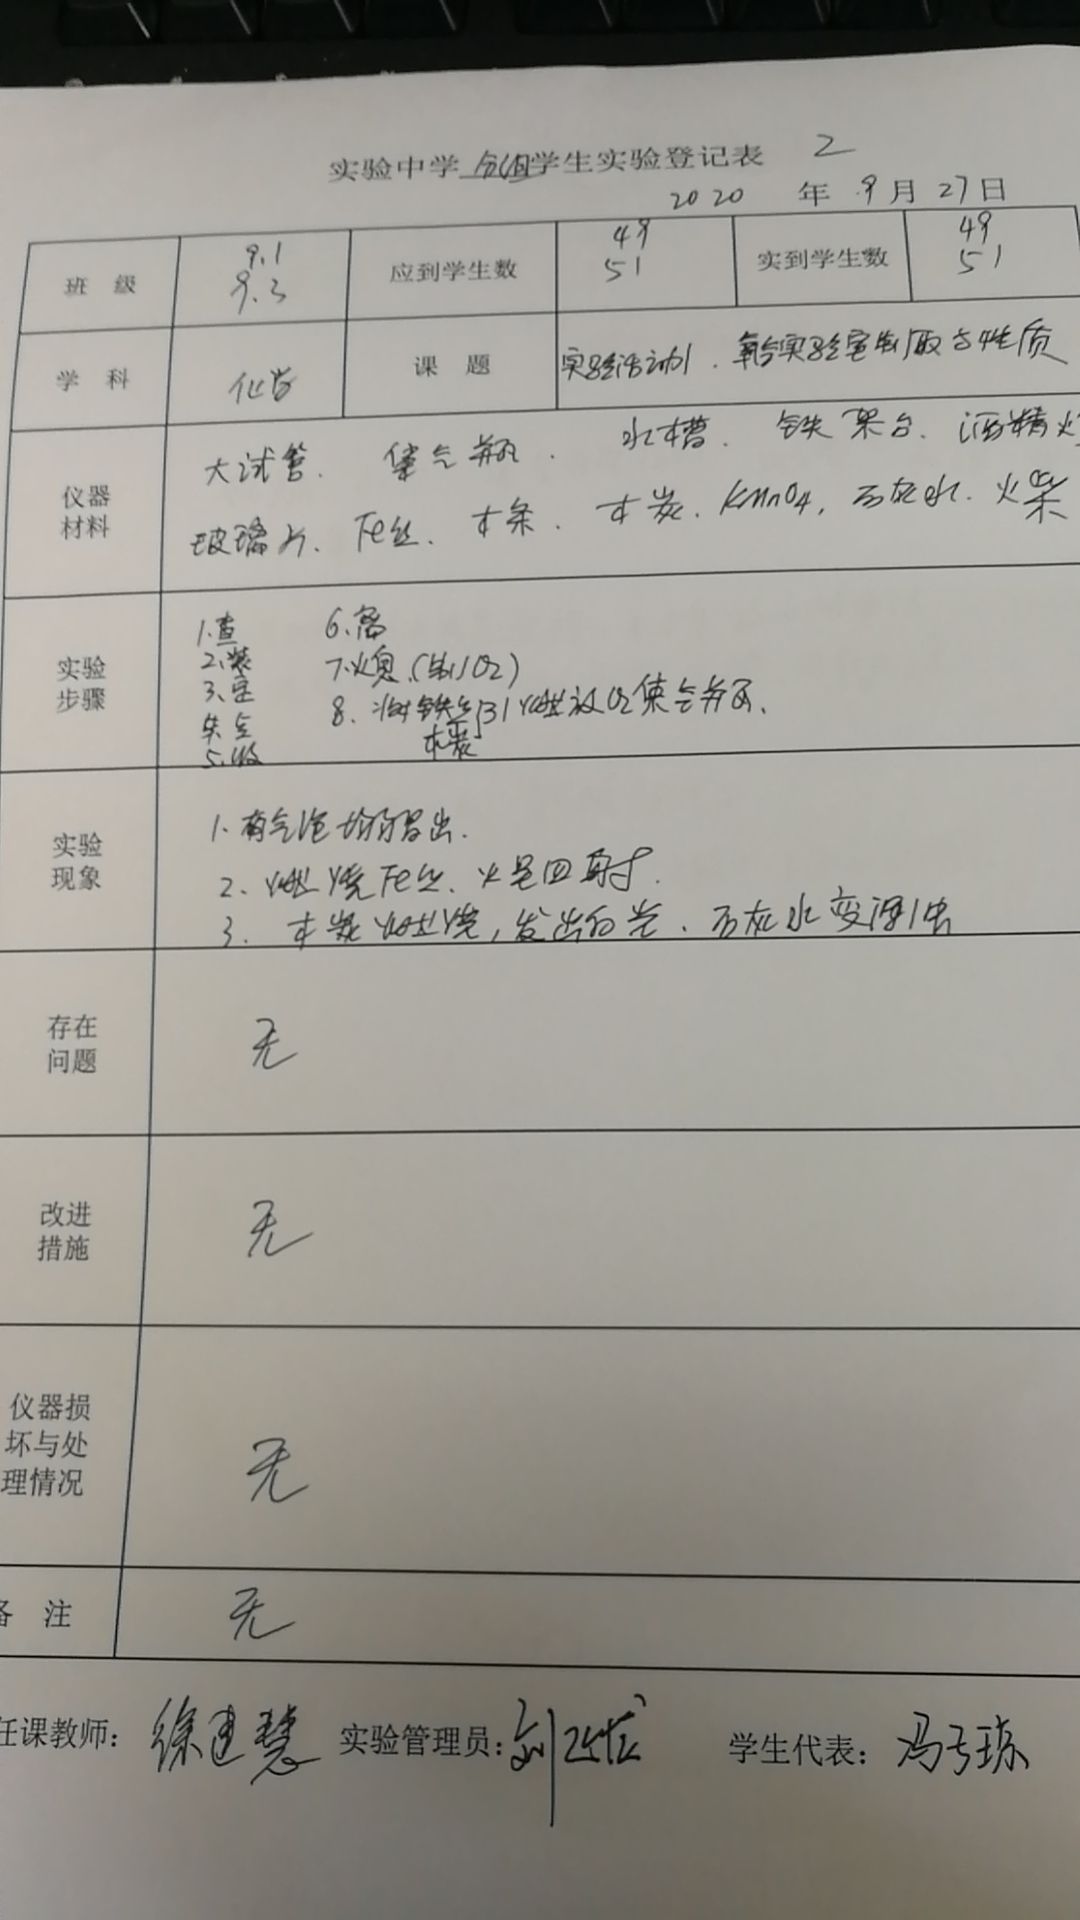 实验中学分组学生实验登记表 2
2020 年 9月 27日
班 级 9.1 9.3 应到学生数 49 51 实到学生数 49 51
学 科 化学 课 题 实验活动1、氧气实验室制取与性质
仪器材料
大试管、集气瓶、水槽、铁架台、酒精灯
玻璃片、Fe丝、木条、木炭、KMnO4、石灰水、火柴
实验步骤
1.查 6.离
2.装 7.熄(制O2)
3.定 8.将铁丝引燃放O2集气瓶、
点 木炭
5.收
实验现象
1.有气泡均匀冒出.
2.燃烧Fe丝、火星四射.
3.木炭燃烧,发出白光、石灰水变浑浊
存在问题 无
改进措施 无
仪器损坏与处理情况 无
备 注 无
任课教师: 徐建慧 实验管理员: 刘 学生代表: 冯